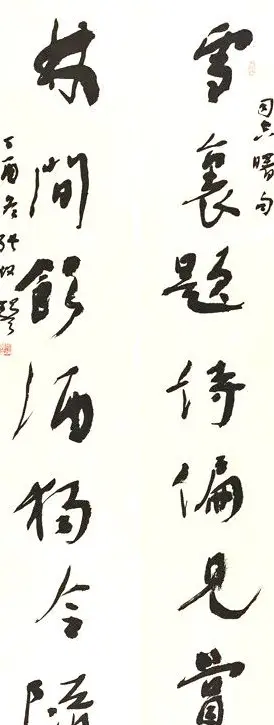 司空曙句
雪裏題詩偏見賞
林間飲酒獨令隨
丁酉冬